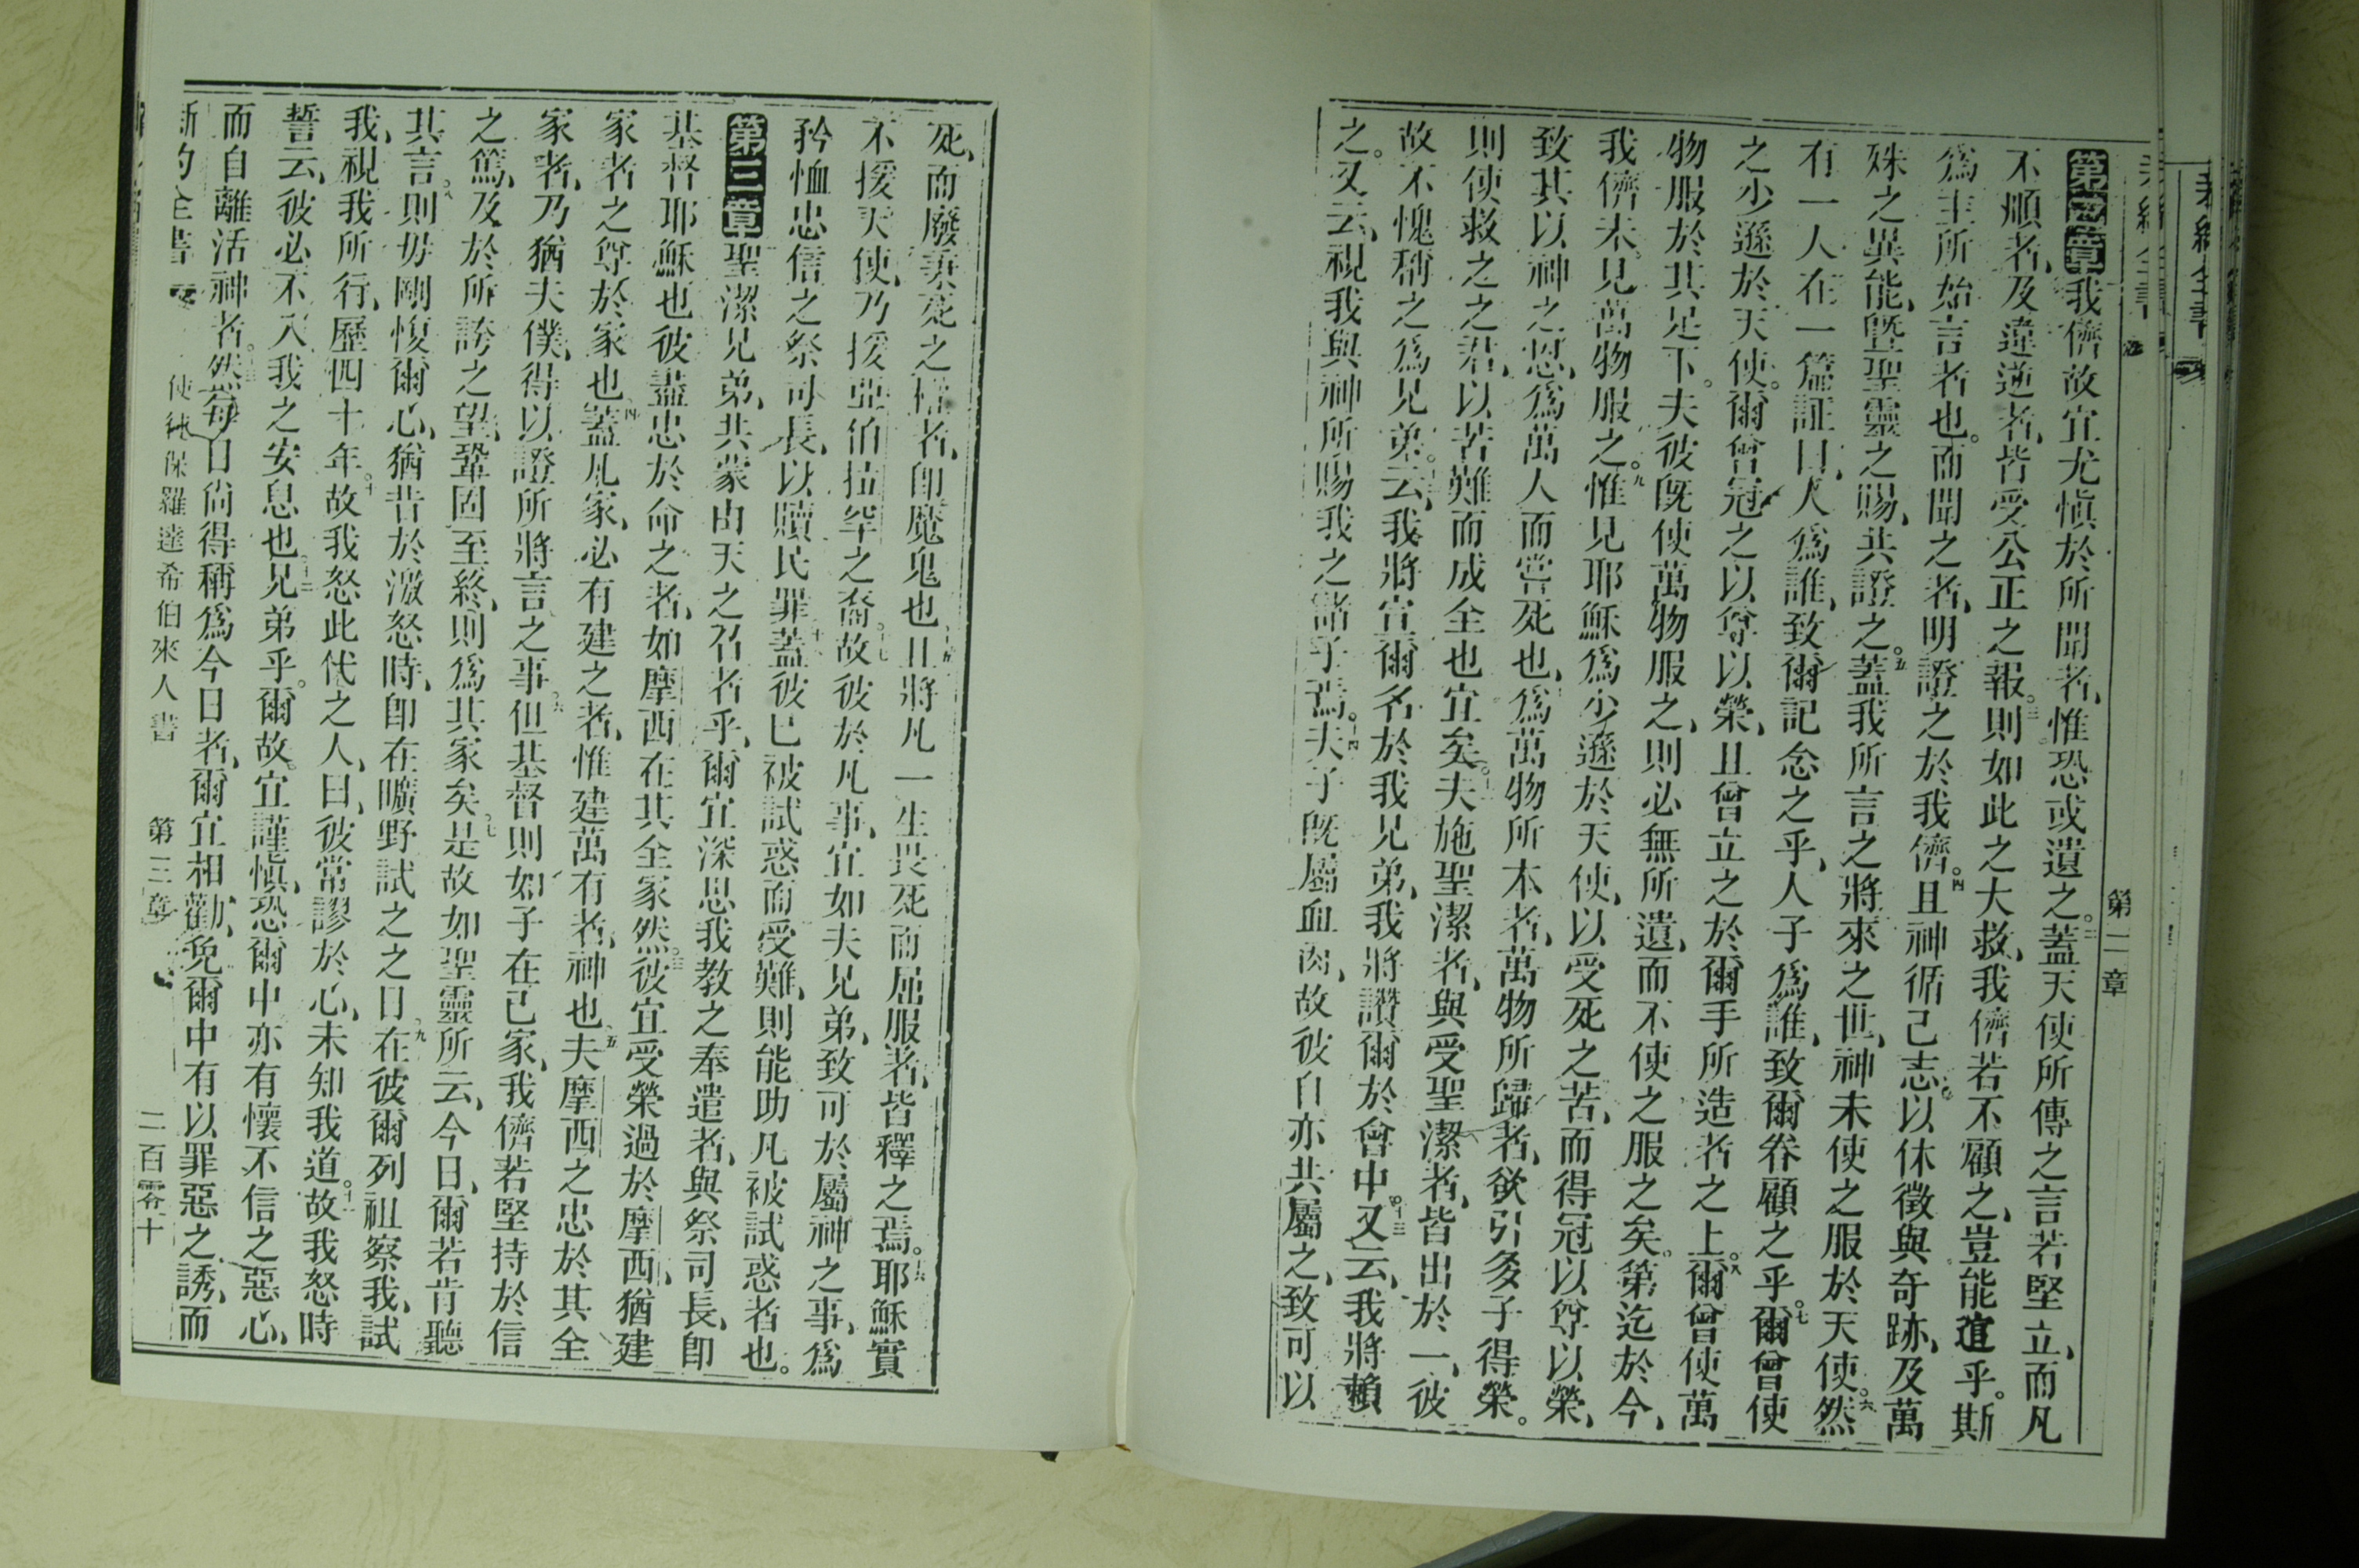 新約全書
第二章
第二章我儕故宜尤愼於所聞者、惟恐或遺之。二蓋天使所傳之言若堅立、而凡
不順者、及違逆者、皆受公正之報。三則如此之大救、我儕若不顧之、豈能逭乎。斯
爲主所始言者也。而聞之者、明證之於我儕。四且神循己志。以休徵與奇跡、及萬
殊之異能、曁聖靈之賜、共證之。五蓋我所言之將來之世、神未使之服於天使。六然
有一人在一篇証曰、人爲誰、致爾記念之乎、人子爲誰、致爾眷顧之乎。七爾曾使
之少遜於天使。爾曾冠之以尊以榮、且曾立之於爾手所造者之上。八爾曾使萬
物服於其足下。夫彼旣使萬物服之、則必無所遺、而不使之服之矣。第迄於今、
我儕未見萬物服之。九惟見耶穌爲少遜於天使、以受死之苦、而得冠以尊以榮、
致其以神之恩、爲萬人而嘗死也、十爲萬物所本者、萬物所歸者、欲引多子得榮。
則使救之之君、以苦難而成全也宜矣。十一夫施聖潔者、與受聖潔者、皆出於一、彼
故不愧稱之爲兄弟。十二云、我將宣爾名於我兄弟、我將讚爾於會中。十三又云、我將賴
之。又云、視我與神所賜我之諸子焉。十四夫子旣屬血肉、故彼自亦共屬之、致可以
死、而廢秉死之權者、卽魔鬼也十五且將凡一生畏死而屈服者、皆釋之焉。十六耶穌實
不援天使、乃援亞伯拉罕之裔。十七故彼於凡事、宜如夫兄弟、致可於屬神之事、爲
矜恤忠信之祭司長、以贖民罪十八蓋彼已被試惑而受難、則能助凡被試惑者也。
第三章聖潔兄弟、共蒙由天之召者乎、爾宜深思我教之奉遣者、與祭司長、卽
基督耶穌也彼盡忠於命之者、如摩西在其全家然。三彼宜受榮過於摩西、猶建
家者之尊於家也四蓋凡家、必有建之者、惟建萬有者、神也五夫摩西之忠於其全
家者、乃猶夫僕、得以證所將言之事。六但基督則如子在己家、我儕若堅持於信
之篤、及於所誇之望、鞏固至終、則爲其家矣。七是故如聖靈所云、今日、爾若肯聽
其言。八則毋剛愎爾心、猶昔於激怒時、卽在曠野試之之日九在彼爾列祖察我、試
我、視我所行、歷四十年。十故我怒此代之人、曰、彼常謬於心、未知我道。十一故我怒時
誓云、彼必不入我之安息也。十二兄弟乎。爾故。宜謹愼、恐爾中亦有懷不信之惡心、
而自離活神者。十三然每日尙得稱爲今日者、爾宜相勸、免爾中有以罪惡之誘、而
新約全書 使徒保羅達希伯來人書 第三章 二百零十